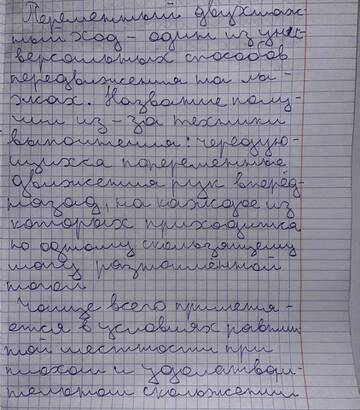 Переменный двухшаж-
ный ход - один из уни-
версальных способов
передвижения на лы-
жах. Название полу-
чил из-за техники
выполнения: чередую-
щихся попеременные
движения рук вперёд-
назад, на каждое из
которых приходится
по одному скользящему
шагу разноимённой
ногой
Чаще всего применя-
ется в условиях равнин-
ной местности при
плохом и удовлетвори-
тельном скольжении